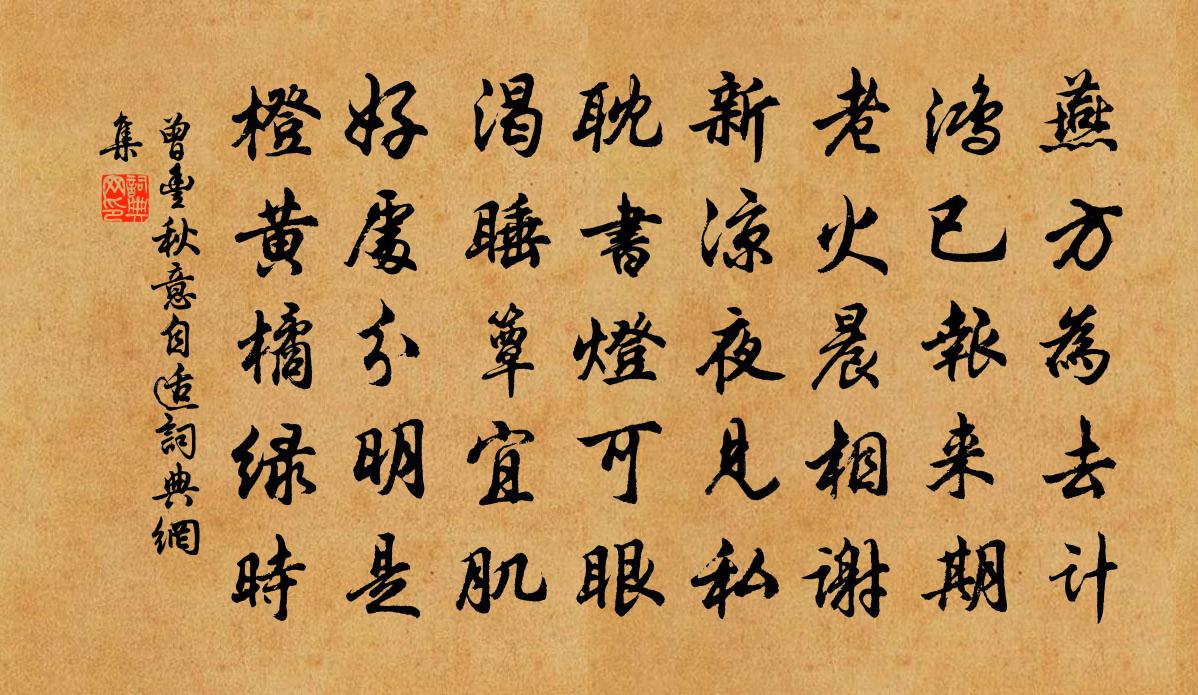 燕方為去计
鸿已報来期
老火晨相謝
新凉夜見私
耽書燈可眼
渴睡簟宜肌
好處分明是
橙黄橘緑時
曾豊秋意自适詞典網
集
詞典网印